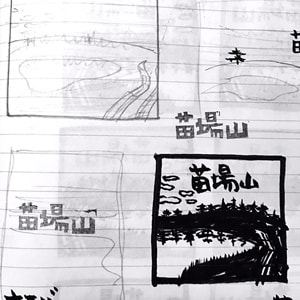 苗場山
苗場山
苗場山